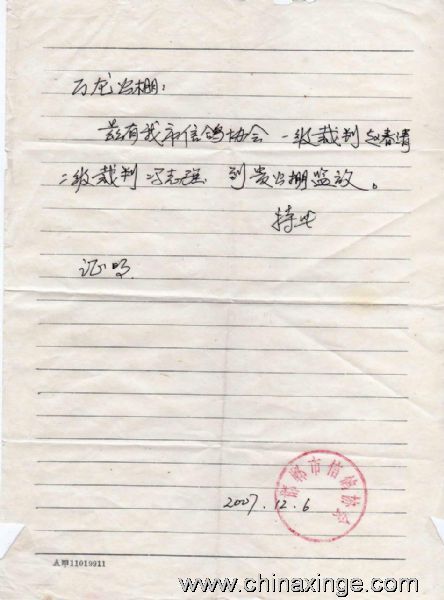 万龙公棚:
兹有我市信鸽协会 一级裁判 赵春清
二级裁判 冯志强 到贵公棚监放。
特此
证明
邯郸市信鸽协会
2007.12.6
A甲11019911
www.chinaxinge.com